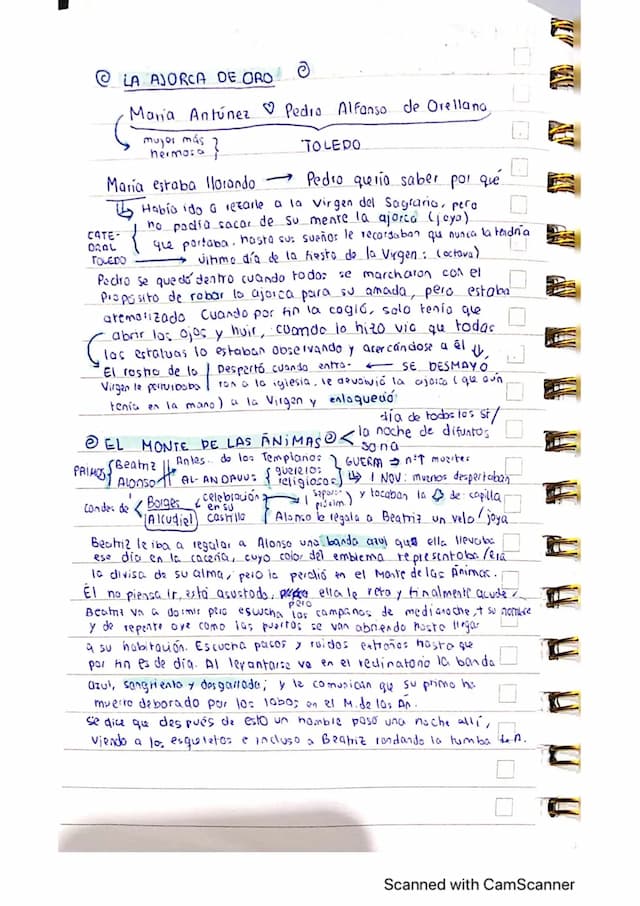 LA AJORCA DE ORO
María Antúnez ♡ Pedro Alfonso de Orellana
mujer más
hermosa
TOLEDO
María estaba llorando → Pedro quería saber por qué
Había ido a rezarle a la Virgen del Sagrario, pero
no podía sacar de su mente la ajorca (joya)
CATE-
DRAL
TOLEDO
que portaba. Hasta sus sueños le recordaban que nunca la tendría
último día de la fiesta de la Virgen: (octava)
Pedro se quedó dentro cuando todos se marcharon con el
propósito de robar la ajorca para su amada, pero estaba
atemorizado. Cuando por fin la cogió, solo tenía que
abrir los ojos y huir, cuando lo hizo vio que todas
las estatuas lo estaban observando y acercándose a él
El rostro de la
Virgen le perturbaba
Despertó cuando entra- ← SE DESMAYÓ
ron a la iglesia, le devolvió la ajorca (que aún
tenía en la mano) a la Virgen y enloqueció
EL MONTE DE LAS ÁNIMAS <
día de todos los st/
la noche de difuntos
Soria
PRIMOS { Beatriz
Alonso
Antes. de los Templarios
AL-ANDALUS
guerreros
religiosos
GUERRA → n°↑ muertes
1 NOV: muertos despertaban
y tocaban la de capilla
Condes de
Borges
Alcudiel
celebración
en su
castillo
Alonso le regala a Beatriz un velo/joya
Beatriz le iba a regalar a Alonso una banda azul que ella llevaba
ese día en la cacería, cuyo color del emblema representaba/era
la divisa de su alma, pero la perdió en el Monte de las Ánimas.
Él no piensa ir, está asustado, ella le reta y finalmente acude
pero
Beatriz va a dormir pero escucha las campanas de medianoche, + su nombre
y de repente oye como las puertas se van abriendo hasta llegar
a su habitación. Escucha pasos y ruidos extraños hasta que
por fin es de día. Al levantarse ve en el reclinatorio la banda
azul, sangrienta y desgarrada; y le comunican que su primo ha
muerto deborado por los lobos en el M. de las Án.
Se dice que después de esto un hombre pasó una noche allí,
viendo a los esqueletos e incluso a Beatriz rondando la tumba de A.
Scanned with CamScanner